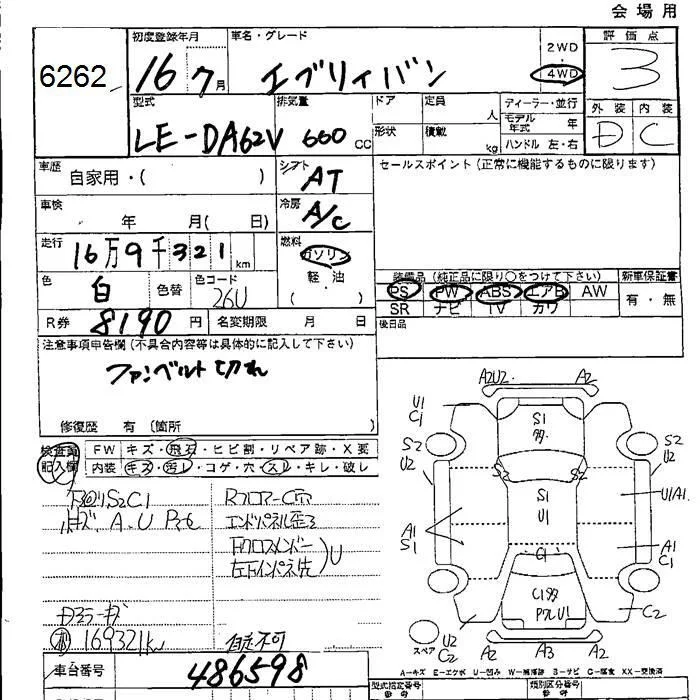 会場用
6262
初度登録年月
16年7月
車名・グレード
エブリィバン
2WD
4WD
評価点
3
型式
LE-DA62V
排気量
660cc
ドア
定員
人
形状
積載
kg
ディーラー・並行
モデル年式 年
ハンドル 左・右
外装
内装
D
C
車歴
自家用・( )
シフト
AT
セールスポイント(正常に機能するものに限ります)
車検
年 月( 日)
冷房
A/C
走行
16万9千321km
燃料
ガソリン
軽・油
( )
色
白
色替
色コード
26U
装備品(純正品に限り○をつけて下さい)
新車保証書
PS PW ABS エアB AW
有・無
SR ナビ TV カワ
R券
8190円
名変期限 月 日
後日品
注意事項申告欄(不具合内容等は具体的に記入して下さい)
ファンベルト切れ
修復歴 有(箇所 )
検査員記入欄
FW キズ・飛石・ヒビ割・リペア跡・X要
内装 キズ・汚レ・コゲ・穴・スレ・キレ・破レ
エンドパネル歪ミ
下クロスメンバー
左下インパネ先
U
169321km
自走不可
車台番号
486598
A2U2
A2
U1
C1
S1
S2
U2
S2
S2
S2
U2
S1
U1
U1A1
A1
S1
A1
C1
C1
U1
スペア
U2
C2
C2
A2 A3 A2
A-キズ E-エクボ U-凹み W-補修跡 S-サビ C-腐食 XX-交換済
型式指定番号
参考
類別区分番号
参考